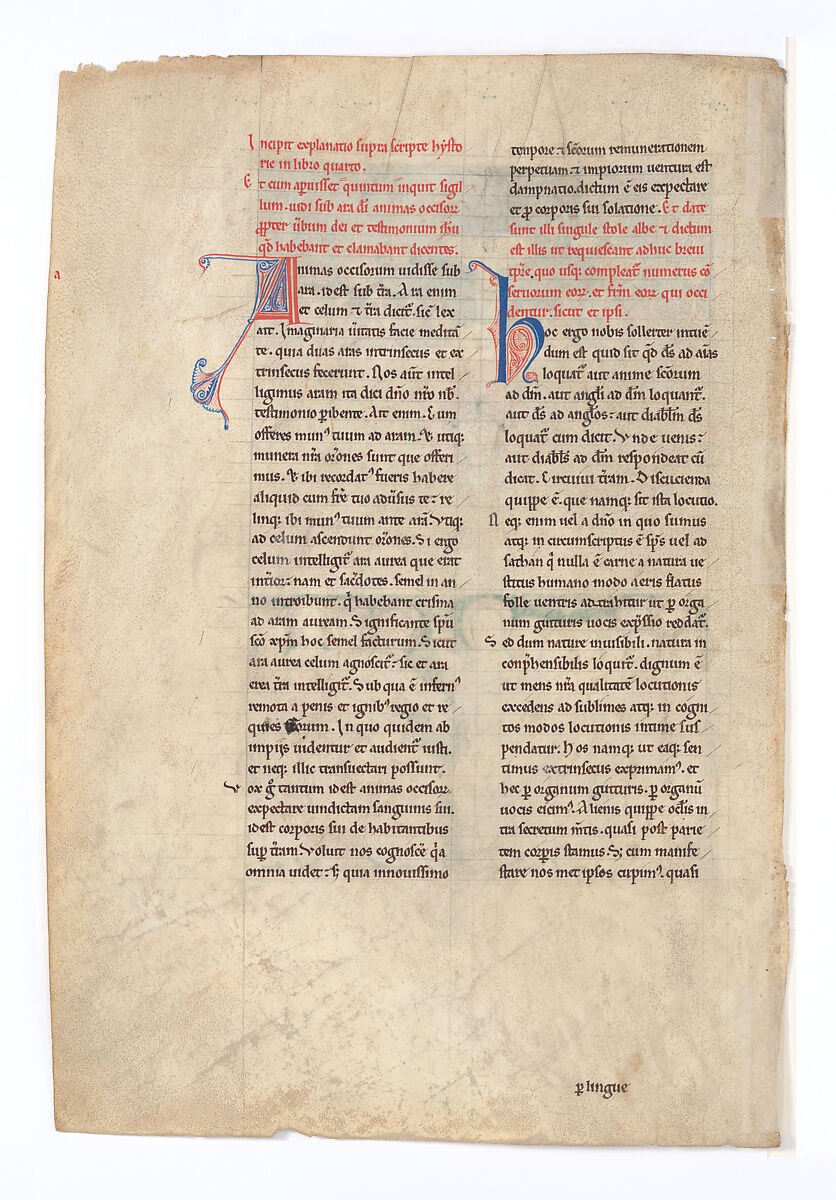 Incipit explanatio supra scripte hysto
rie in libro quarto.
Et cum aperuisset quintum inquit sigil
lum. uidi sub ara dī animas occisorꝝ
ꝓpter ūbum dei et testimonium ihu
qd̄ habebant et clamabant dicentes.
a
Animas occisorum uidisse sub
ara. id est sub tr̄a. Ara enim
et celum ⁊ tr̄a dicit᷑. sic̄ lex
ait. Imaginaria ūitatis facie meditā
te. quia duas aras intrinsecus et ex
trinsecus fecerunt. Nos aūt intel
ligimus aram ita dici dn̄o nr̄o nb̄.
testimonio ꝑibente. Ait enim. Cum
offeres munꝰ tuum ad aram. ⁊ utiqꝫ
munera nr̄a or̄ones sunt que offeri
mus. ⁊ ibi recordatꝰ fueris habere
aliquid cum fr̄e tuo adūsus te: re
linqꝫ ibi munꝰ tuum ante arā. Vtiqꝫ
ad celum ascendunt or̄ones. Si ergo
celum intelligit᷑ ara aurea que erat
int̄ior: nam et sac̄dotes. semel in an
no introibunt. q̇ habebant crisma
ad aram auream. Significante spū
sc̄o xp̄m hoc semel facturum. Sicut
ara aurea celum agnoscit᷑: sic et ara
erea tr̄a intelligit᷑. Sub qua ē infernꝰ
remota a penis et ignibꝰ regio et re
quies scorum. In quo quidem ab
impijs uidentur et audient᷑ iusti.
et neqꝫ illic transuectari possunt.
Vox g̊ tantum id est animas occisorꝝ
expectare uindictam sanguinis sui.
id est corporis sui de habitantibus
suꝑ tr̄am. Voluit nos cognosc̄e q̄a
omnia uidet: sꝫ quia in nouissimo
tempore ⁊ sc̄orum remunerationem
perpetuam. ⁊ impiorum uentura est
dampnatio. dictum ē eis expectare
et ꝓ corporis sui solatione. Et date
sunt illi singule stole albe ⁊ dictum
est illis ut requiescant adhuc breui
tp̄re. quo usqꝫ compleat᷑ numerus cō
seruorum eorꝝ. et fr̄m eorꝝ qui occi
dentur. sicut et ipsi.
hoc ergo nobis sollerter intuē
dum est quid sit qd̄ ds̄ ad aīas
loquat᷑ aut anime sc̄orum
ad dm̄. aut angl̄i ad dm̄ loquant᷑.
aut ds̄ ad angl̄os: aut diabl̄m ds̄
loquat᷑ cum dicit. Vnde uenis:
aut diabl̄s ad dm̄ respondeat cū
dicat. Circuiui tr̄am. Discucienda
quippe ē. que namqꝫ sit ista locutio.
Neqꝫ enim uel a dn̄o in quo sumus
atqꝫ in circumscriptus ē sp̄s uel ad
sathan q̇ nulla ē carne a natura ue
stitus humano modo aeris flatus
folle uentris ad trahitur ut ꝑ orga
num gutturis uocis exp̄ssio reddat᷑.
Sed dum nature inuisibili. natura in
conp̄hensibilis loquit᷑. dignum ē
ut mens nr̄a qualitatē locutionis
excedens ad sublimes atqꝫ in cogni
tos modos locutionis intime sus
pendatur. Nos namqꝫ ut eaqꝫ sen
timus extrinsecus exprimamꝰ. et
hec ꝑ organum gutturis. ꝑ organū
uocis eicimꝰ. Alienis quippe oc̄lis in
tra secretum m̄tis. quasi post parie
tem corꝑis stamus. Sꝫ cum manife
stare nos met ipsos cupimꝰ. quasi
ꝑ lingue